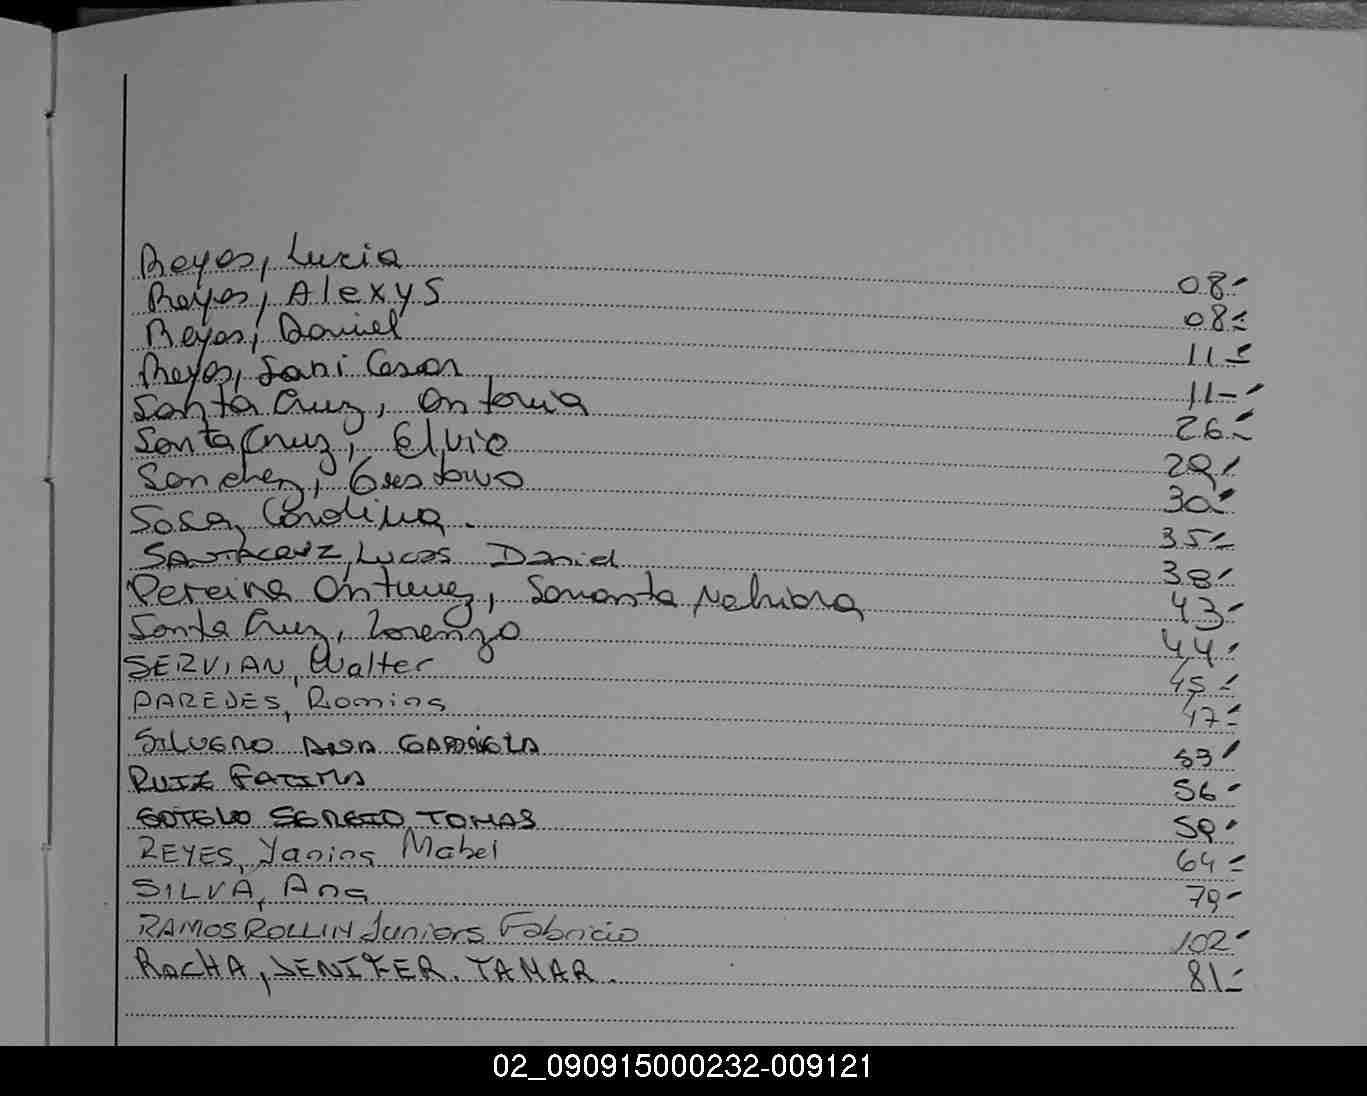 Reyes, Lucia 08.-
Reyes, Alexys 08.-
Reyes, Daniel 11.-
Reyes, Sani Cesar 11.-
Santa Cruz, Antonia 26.-
Santa Cruz, Elvio 29.-
Sanchez, Gustavo 30.-
Sosa, Carolina. 35.-
SANTACRUZ, Lucas Daniel 38.-
Pereira Antunez, Samanta Nahiara 43.-
Santa Cruz, Lorenzo 44.-
SERVIAN, Walter 45.-
PAREDES, Romina 47.-
SILVERO ANA GABRIELA 53.-
RUIZ FATIMA 56.-
SOTELO SERGIO TOMAS 59.-
REYES, Yanina Mabel 64.-
SILVA, Ana 79.-
RAMOS ROLLIN Juniors Fabricio 102.-
ROCHA, JENIFER. TAMAR. 81.-
02_090915000232-009121